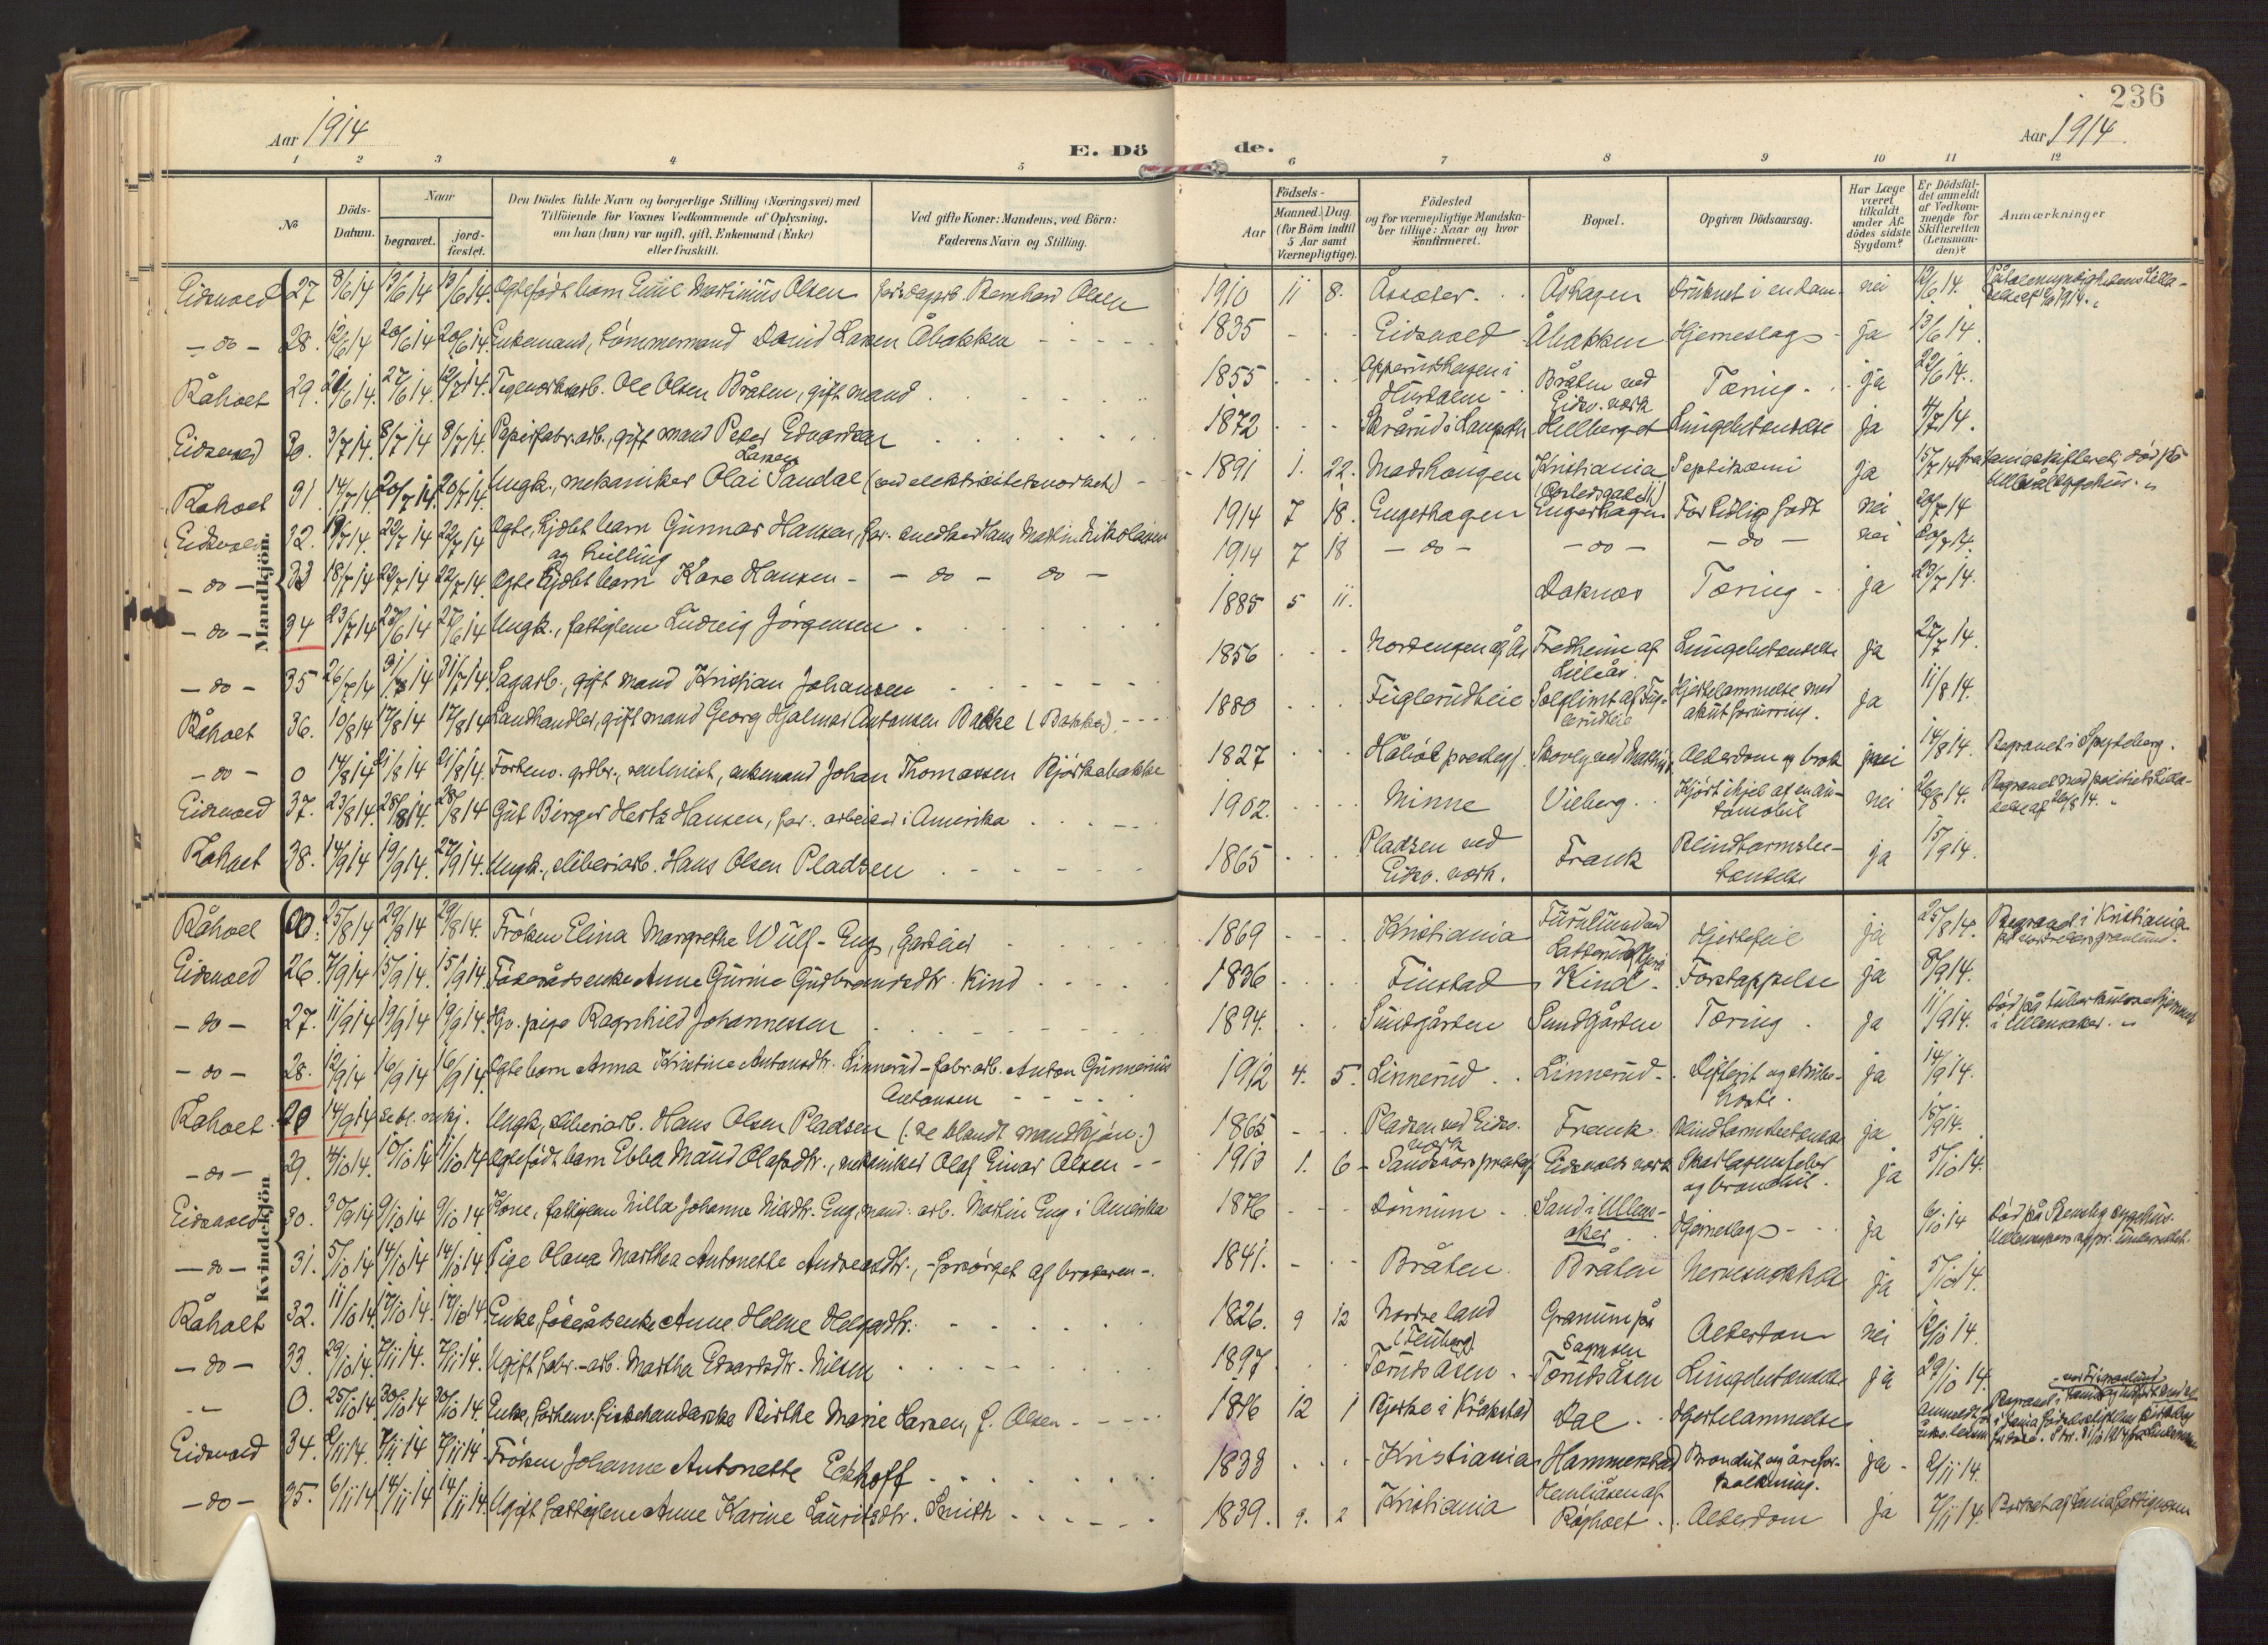 236
Aar 1914
E. Dö
de.
Aar 1914.
1 2 3 4 5 6 7 8 9 10 11 12
№
Döds-Datum.
Naar
begravet.
jord-fæstet.
Den Dödes fulde Navn og borgerlige Stilling (Næringsvei) med
Tilföiende for Voxnes Vedkommende af Oplysning,
om han (hun) var ugift, gift, Enkemand (Enke)
eller fraskilt.
Ved gifte Koner: Mandens, ved Börn:
Faderens Navn og Stilling.
Födsels-
Aar
Maaned. Dag.
(for Börn indtil
5 Aar samt
Værnepligtige).
Födested
og for værnepligtige Mandska-
ber tillige: Naar og hvor
konfirmeret.
Bopæl.
Opgiven Dödsaarsag.
Har Læge
været
tilkaldt
under Af-
dödes sidste
Sygdom?
Er Dödsfal-
det anmeldt
af Vedkom-
mende for
Skifteretten
(Lensman-
den)?
Anmærkninger
Mandkjön.
Eidsvold 27 8/6 14 13/6 14 13/6 14. Ægtefödt barn Emil Martinius Olsen Bernhard Olsen 1910 11 8. Åssæter. Åshagen Druknet i en dam nei 12/6 14.
-do- 28. 12/6 14 20/6 14 20/6 14. Enkemand, tömmermand David Larsen Åbakken 1835 - - Eidsvold Åbakken Hjerneslag ja 13/6 14.
Råholt 29. 21/6 14. 27/6 14. 12/7 14. Teglverksarb. Ole Olsen Bråten, gift mand 1855 Hurdalen Bråten ved Eidsv. værk Tæring. ja 22/6 14.
Eidsvold 30. 3/7 14. 8/7 14 8/7 14. Papirfabr.arb., gift mand Peter Edvardsen 1872 Hellberget Lungebetændelse ja 4/7 14.
Råholt 31 14/7 14. 20/7 14. 20/7 14. Ungk., mekaniker Olai Larsen Sandal (ved elektricitetsverket) 1891 1. 22. Madskongen Kristiania Septikæmi ja 15/7 14
Eidsvold 32. 22/7 14 22/7 14 Ægte, hjdbt barn Gunnar Hansen, far. snedker Hans Martin Nikolaisen 1914 7 18. Engerhagen Engerhagen For tidlig födt nei 20/7 14
og tvilling
-do- 33 18/7 14 22/7 14 22/7 14. Ægte hjdbt barn Kåre Hansen - -do- do- 1914 7 18 -do- -do- -do- nei 20/7 14.
-do- 34 23/7 14 27/6 14 27/6 14 Ungk., fattiglem Ludvig Jörgensen 1885 5 11. Doknes Tæring - ja 23/7 14.
-do- 35 26/7 14 31/7 14 31/7 14. Sagarb., gift mand Kristian Johansen 1856 Nordengen af Ås Fredheim af Lilleås. Lungebetændelse ja 27/7 14.
Råholt 36. 10/8 14 17/8 14 17/8 14 Landhandler, gift mand Georg Hjalmar Antonsen Bakke (Bakke) 1880 Fuglerudeie Solglimt af Fuglerudeie Hjertelammelse med ja 11/8 14.
-do- 0 14/8 14 21/8 14 21/8 14. Forhenv. grdbr., rentenist, enkemand Johan Thomassen Björkebakke 1827 Håböl prestegj. Skovly ved Alderdom og brok nei 14/8 14. Begravet i Spydeberg.
Eidsvold 37. 23/8 14. 28/8 14. 28/8 14 Gut Birger Hertz Hansen, far. arbeider i Amerika 1902. Minne Vieberg Kjört ihjel af en automobil nei 26/8 14.
Råholt 38. 14/9 14 19/9 14. 27/9 14. Ungk., sliberiarb. Hans Olsen Pladsen 1865 Pladsen ved Eidsv. værk. Frank Blindtarmsbetændelse ja 15/9 14.
Kvindekjön
Råholt 0. 25/8 14 29/8 14 29/8 14. Fröken Elina Margrethe Wulf-Eng, 1869 - - Kristiania Hjertefeil ja 25/8 14. Begravet i Kristiania
Eidsvold 26. 7/9 14 15/9 14. 15/9 14. Föderådsenke Anne Gurine Gudbrandsdtr. Kind 1836 Finstad Kind. Forstoppelse ja 8/9 14.
-do- 27. 11/9 14 19/9 14 19/9 14. pige Ragnhild Johannessen 1894. Sundgården Sundgården Tæring. ja 11/9 14. Död på tuberkulosehjemmet i Ullensaker.
-do- 28. 12/9 14 16/9 14 16/9 14. Ægte barn Anna Kristine Antonsdtr. Linnerud - fabr.arb. Anton Gunnerius Antonsen 1912 4. 5. Linnerud Linnerud. Difterit og strubehoste. ja 14/9 14.
Råholt 20 14/9 14 se bl. mkj. Ungk, sliberiarb. Hans Olsen Pladsen (: se blandt mandkjön:) 1865 - - Pladsen ved Eidsv. værk Frank Blindtarmbetændelse ja 15/9 14.
-do- 29. 4/10 14. 10/10 14 11/10 14 Ægtefödt barn Ebba Maud Olafsdtr., mekaniker Olaf Einar Olsen - - 1913 1. 6 Eidsvolds værk Skarlagensfeber og brandbil. ja 5/10 14.
Eidsvold 30. 30/9 14 9/10 14 9/10 14 Kone, fattiglem Nilla Johanne Nilsdtr. Eng, mand: arb. Martin Eng i Amerika 1876 - - Dönnum Sand i Ullensaker Hjerneslag ja 6/10 14
-do- 31. 5/10 14 14/10 14 14/10 14. Pige Olava Marthea Antonette Andreasdtr., - forsörget af broderen -. 1841. - - Bråten Bråten ja 5/10 14.
Råholt 32. 11/10 14. 17/10 14 17/10 14. Enke, föderådsenke Anne Helene Helgesdtr. 1826. 9 12 Nordre land Granum på Alderdom nei 12/10 14.
-do- 33. 29/10 14. 7/11 14. 7/11 14. Ugift fabr.-arb. Martha Edvardsdtr. Nilsen 1897. Tærudsåsen Tærudsåsen Lungebetændelse ja 29/10 14.
0. 25/10 14. 30/10 14 30/10 14. Enke, forhenv. fiskehandlerske Birthe Marie Larsen, f. Olsen 1846 12 1 Bjerke i Kråkstad Dal Hjertelammelse
Eidsvold 34. 2/11 14. 7/11 14 7/11 14. Fröken Johanne Antonette Eckhoff 1838 Kristiania Hammerstad og åreforkalkning. ja 2/11 14.
-do- 35. 6/11 14. 14/11 14 14/11 14. Ugift fattiglem Anne Karine Lauritsdtr. Smith 1839. 9. 2 Kristiania Råholt Alderdom ja 7/11 14.